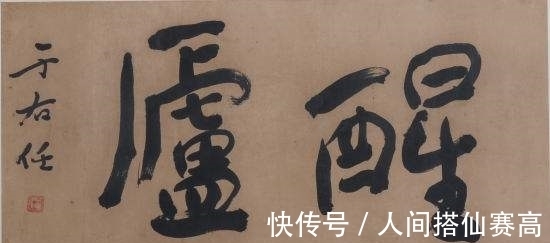 醒廬
于右任
快传号 / 人间搭仙赛高